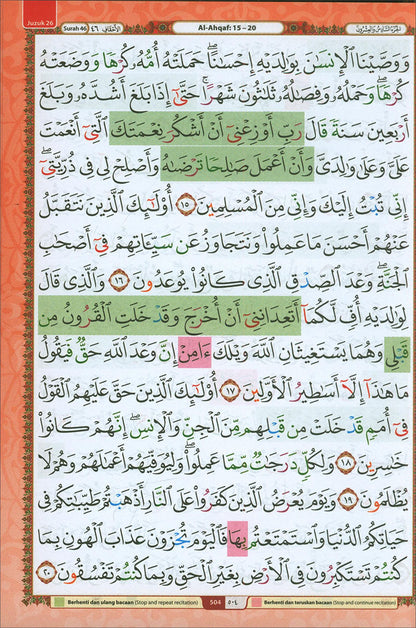 Juzuk 26
Surah 46 ٤٦ الأحقاف
Al-Ahqaf: 15 – 20
الجزء السادس والعشرون
وَوَصَّيْنَا ٱلْإِنسَٰنَ بِوَٰلِدَيْهِ إِحْسَٰنًا ۖ حَمَلَتْهُ أُمُّهُۥ كُرْهًا وَوَضَعَتْهُ
كُرْهًا ۖ وَحَمْلُهُۥ وَفِصَٰلُهُۥ ثَلَٰثُونَ شَهْرًا ۚ حَتَّىٰٓ إِذَا بَلَغَ أَشُدَّهُۥ وَبَلَغَ
أَرْبَعِينَ سَنَةً قَالَ رَبِّ أَوْزِعْنِىٓ أَنْ أَشْكُرَ نِعْمَتَكَ ٱلَّتِىٓ أَنْعَمْتَ
عَلَىَّ وَعَلَىٰ وَٰلِدَىَّ وَأَنْ أَعْمَلَ صَٰلِحًا تَرْضَىٰهُ وَأَصْلِحْ لِى فِى ذُرِّيَّتِىٓ ۖ
إِنِّى تُبْتُ إِلَيْكَ وَإِنِّى مِنَ ٱلْمُسْلِمِينَ ١٥ أُو۟لَٰٓئِكَ ٱلَّذِينَ نَتَقَبَّلُ
عَنْهُمْ أَحْسَنَ مَا عَمِلُوا۟ وَنَتَجَاوَزُ عَن سَيِّـَٔاتِهِمْ فِىٓ أَصْحَٰبِ
ٱلْجَنَّةِ ۖ وَعْدَ ٱلصِّدْقِ ٱلَّذِى كَانُوا۟ يُوعَدُونَ ١٦ وَٱلَّذِى قَالَ
لِوَٰلِدَيْهِ أُفٍّ لَّكُمَآ أَتَعِدَانِنِىٓ أَنْ أُخْرَجَ وَقَدْ خَلَتِ ٱلْقُرُونُ مِن
قَبْلِى وَهُمَا يَسْتَغِيثَانِ ٱللَّهَ وَيْلَكَ ءَامِنْ إِنَّ وَعْدَ ٱللَّهِ حَقٌّ فَيَقُولُ
مَا هَٰذَآ إِلَّآ أَسَٰطِيرُ ٱلْأَوَّلِينَ ١٧ أُو۟لَٰٓئِكَ ٱلَّذِينَ حَقَّ عَلَيْهِمُ ٱلْقَوْلُ
فِىٓ أُمَمٍ قَدْ خَلَتْ مِن قَبْلِهِم مِّنَ ٱلْجِنِّ وَٱلْإِنسِ ۖ إِنَّهُمْ كَانُوا۟
خَٰسِرِينَ ١٨ وَلِكُلٍّ دَرَجَٰتٌ مِّمَّا عَمِلُوا۟ ۖ وَلِيُوَفِّيَهُمْ أَعْمَٰلَهُمْ وَهُمْ لَا
يُظْلَمُونَ ١٩ وَيَوْمَ يُعْرَضُ ٱلَّذِينَ كَفَرُوا۟ عَلَى ٱلنَّارِ أَذْهَبْتُمْ طَيِّبَٰتِكُمْ فِى
حَيَاتِكُمُ ٱلدُّنْيَا وَٱسْتَمْتَعْتُم بِهَا فَٱلْيَوْمَ تُجْزَوْنَ عَذَابَ ٱلْهُونِ بِمَا
كُنتُمْ تَسْتَكْبِرُونَ فِى ٱلْأَرْضِ بِغَيْرِ ٱلْحَقِّ وَبِمَا كُنتُمْ تَفْسُقُونَ ٢٠
Berhenti dan ulang bacaan (Stop and repeat recitation)
504 ٥٠٤
Berhenti dan teruskan bacaan (Stop and continue recitation)